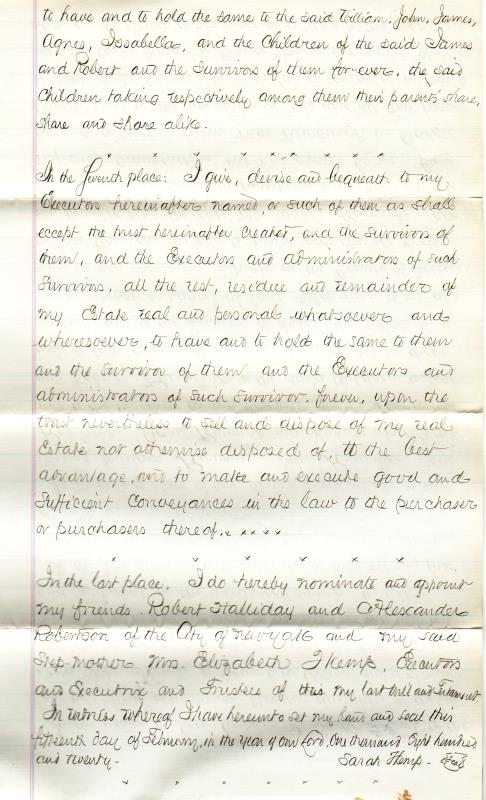 to have and to hold the same to the said William, John, James,
Agnes, Issabella, and the Children of the said James
and Robert and the survivors of them forever, the said
Children taking respectively among them their parents' share,
share and share alike.
x x x x x x x
In the Seventh place: I give, devise and bequeath to my
Executors hereinafter named, or such of them as shall
except the trust hereinafter created, and the survivors of
them, and the Executors and administrators of such
survivors, all the rest, residue and remainder of
my Estate real and personal whatsoever and
wheresoever, to have and to hold the same to them
and the survivor of them and the Executors and
administrators of such survivor forever, upon the
trust nevertheless to sell and dispose of my real
Estate not otherwise disposed of, to the best
advantage, and to make and execute good and
sufficient Conveyances in the law to the purchaser
or purchasers thereof. x x x x
x x x x x x x
In the last place, I do hereby nominate and appoint
my friends Robert Halliday and Alexander
Robertson of the City of New York and my said
step-mother Mrs. Elizabeth Hemp, Executors
and Executrix and Trustees of this my last Will and Testament.
In witness whereof I have hereunto set my hand and seal this
fifteenth day of February, in the year of our Lord, One thousand Eight hundred
and twenty - Sarah Hemp - Seal
x x x x x x